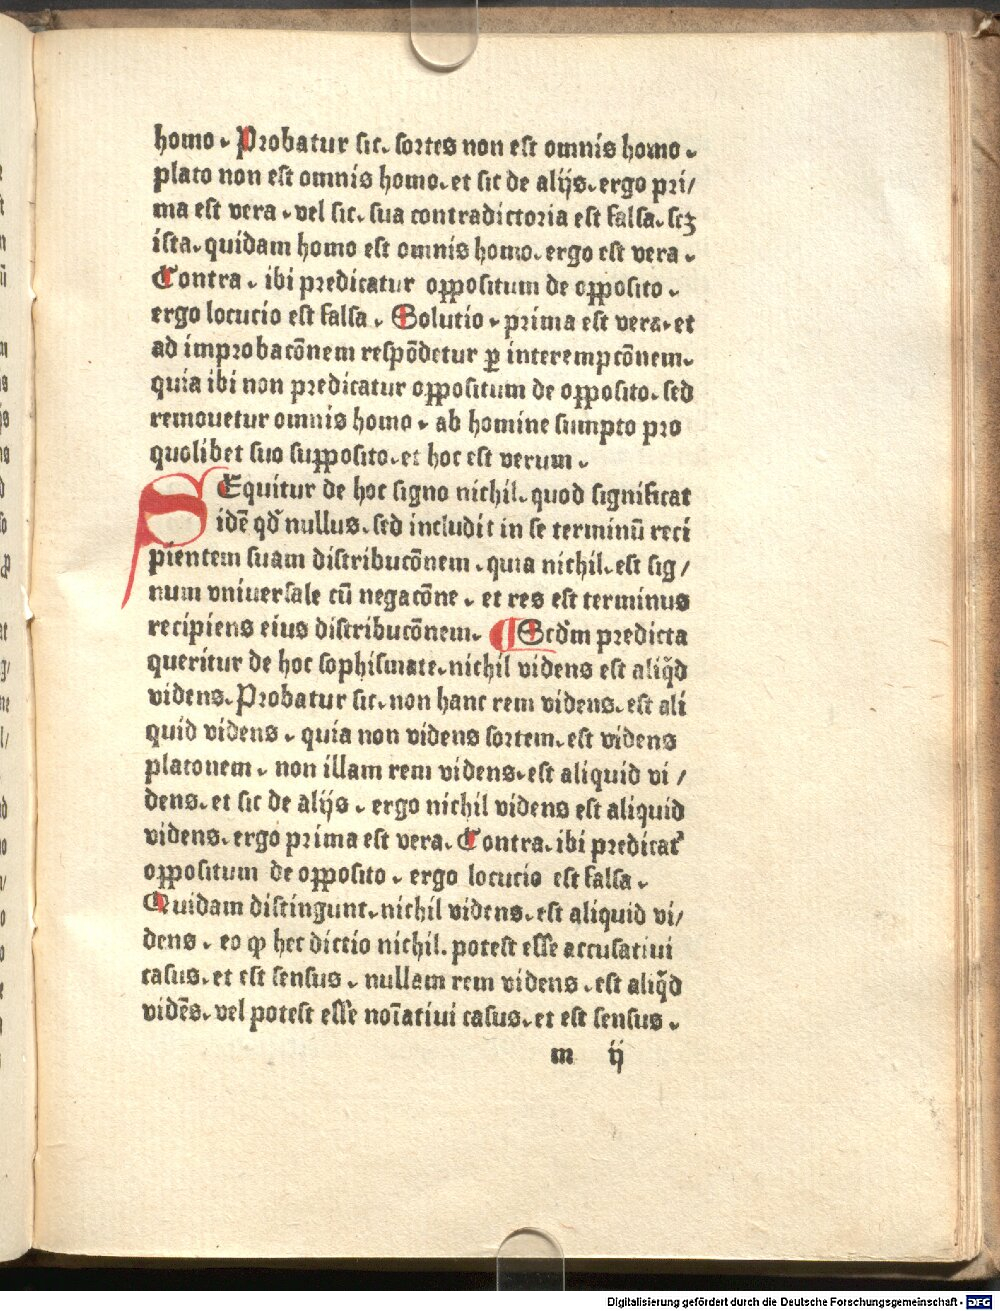 homo. Probatur sic. sortes non est omnis homo.
plato non est omnis homo. et sic de alijs. ergo pri/
ma est vera. vel sic. sua contradictoria est falsa. scꝫ
ista. quidam homo est omnis homo. ergo est vera.
Contra. ibi predicatur oppositum de opposito.
ergo locucio est falsa. Solutio. prima est vera. et
ad improbacōnem respōdetur ꝑ interempcōnem.
quia ibi non predicatur oppositum de opposito. sed
remouetur omnis homo. ab homine sumpto pro
quolibet suo supposito. et hoc est verum.
SEquitur de hoc signo nichil. quod significat
idē qd̄ nullus. sed includit in se terminū reci
pientem suam distribucōnem. quia nichil. est sig/
num vniuersale cū negacōne. et res est terminus
recipiens eius distribucōnem. ¶ Scd̄m predicta
queritur de hoc sophismate. nichil videns est aliq̄d
videns. Probatur sic. non hanc rem videns. est ali
quid videns. quia non videns sortem. est videns
platonem. non illam rem videns. est aliquid vi/
dens. et sic de alijs. ergo nichil videns est aliquid
videns. ergo prima est vera. Contra. ibi predicat᷑
oppositum de opposito. ergo locucio est falsa.
Quidam distingunt. nichil videns. est aliquid vi/
dens. eo ꝙ hec dictio nichil. potest esse accusatiui
casus. et est sensus. nullam rem videns. est aliq̄d
vidēs. vel potest esse noīatiui casus. et est sensus.
m ij
Digitalisierung gefördert durch die Deutsche Forschungsgemeinschaft - DFG